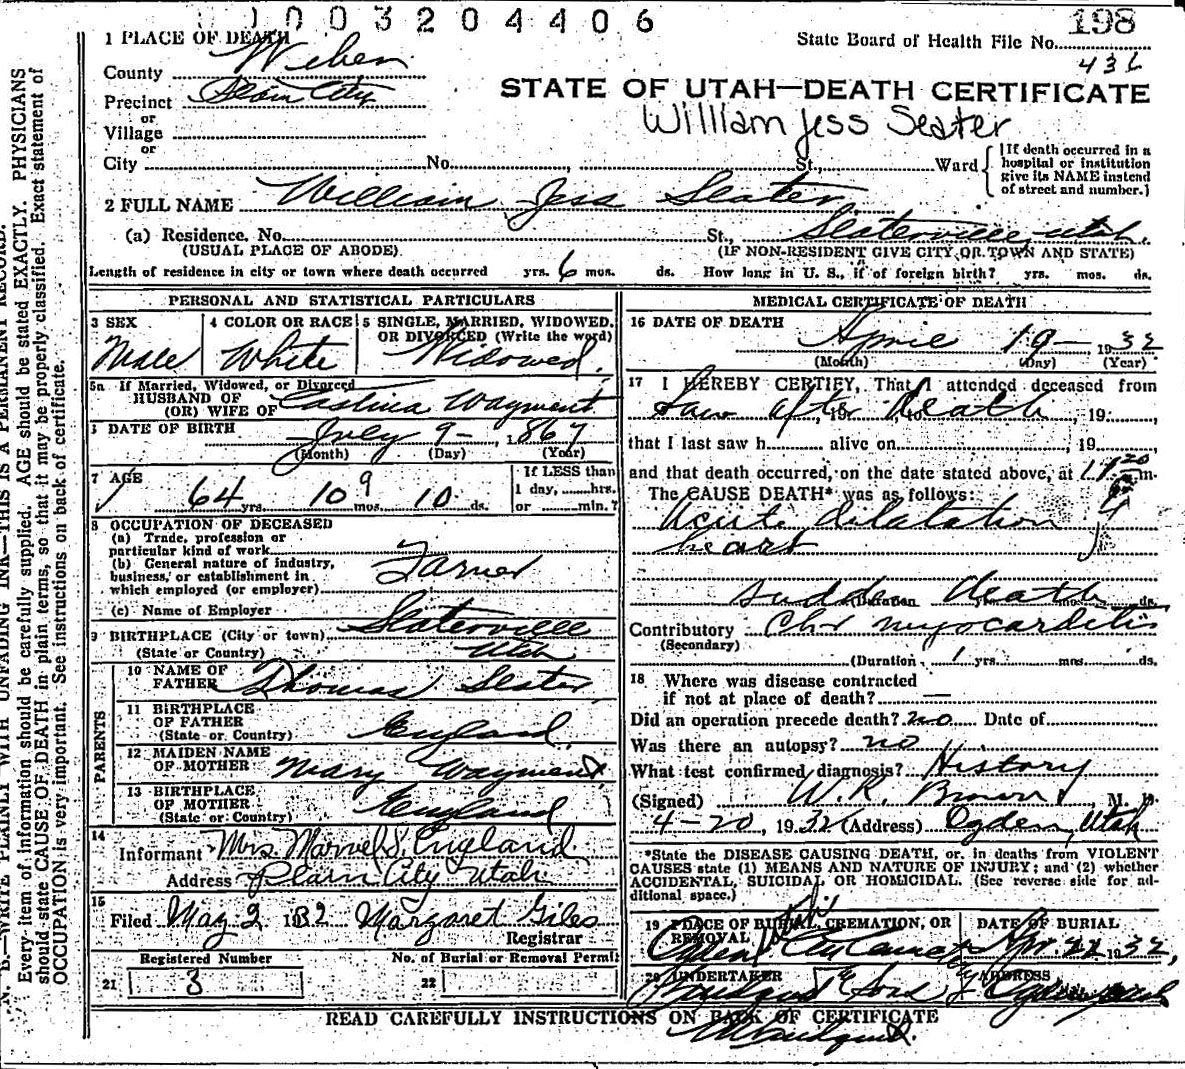 0003204406
198
State Board of Health File No.
436
1 PLACE OF DEATH
County Weber
Precinct Plain City
or
Village
or
City No. St. Ward
(If death occurred in a hospital or institution give its NAME instead of street and number.)
STATE OF UTAH—DEATH CERTIFICATE
William Jess Slater
2 FULL NAME William Jess Slater
(a) Residence. No. St., Slaterville, Utah.
(USUAL PLACE OF ABODE) (IF NON-RESIDENT GIVE CITY OR TOWN AND STATE)
Length of residence in city or town where death occurred yrs. 6 mos. ds. How long in U. S., if of foreign birth? yrs. mos. ds.
PERSONAL AND STATISTICAL PARTICULARS
3 SEX
Male
4 COLOR OR RACE
White
5 SINGLE, MARRIED, WIDOWED, OR DIVORCED (Write the word)
Widowed
5a If Married, Widowed, or Divorced
HUSBAND OF
(OR) WIFE OF Wayment
DATE OF BIRTH July 9- 1867
(Month) (Day) (Year)
7 AGE 64 yrs. 10 9 mos. 10 ds.
If LESS than
1 day, hrs.
or min.?
8 OCCUPATION OF DECEASED
(a) Trade, profession or
particular kind of work
(b) General nature of industry,
business, or establishment in
which employed (or employer)
Farmer
(c) Name of Employer
9 BIRTHPLACE (City or town) Slaterville
(State or Country) Utah
PARENTS
10 NAME OF
FATHER Thomas Slater
11 BIRTHPLACE
OF FATHER
(State or Country) England
12 MAIDEN NAME
OF MOTHER Mary Wayment
13 BIRTHPLACE
OF MOTHER
(State or Country) England
14
Informant Mrs. Marvel S. England
Address Plain City Utah
15
Filed May 2 1932 Margaret Giles
Registrar
Registered Number
21 3
No. of Burial or Removal Permit
22
MEDICAL CERTIFICATE OF DEATH
16 DATE OF DEATH
April 19- 1932
(Month) (Day) (Year)
17 I HEREBY CERTIFY, That I attended deceased from
Saw after death, 19
that I last saw h alive on, 19
and that death occurred, on the date stated above, at m.
The CAUSE DEATH* was as follows:
Acute dilatation
heart
sudden death
(Duration yrs. mos. ds.
Contributory Chr myocarditis
(Secondary)
(Duration 1 yrs. mos. ds.
18 Where was disease contracted
if not at place of death? —
Did an operation precede death? no Date of
Was there an autopsy? no
What test confirmed diagnosis? History
(Signed) W. R. Brown, M. D.
4-20, 1932 (Address) Ogden, Utah
*State the DISEASE CAUSING DEATH, or in deaths from VIOLENT
CAUSES state (1) MEANS AND NATURE OF INJURY; and (2) whether
ACCIDENTAL, SUICIDAL, OR HOMICIDAL. (See reverse side for ad-
ditional space.)
19 PLACE OF BURIAL, CREMATION, OR
REMOVAL
Ogden
DATE OF BURIAL
Apr. 22 1932
20 UNDERTAKER
& Sons
ADDRESS
Ogden
READ CAREFULLY INSTRUCTIONS ON BACK OF CERTIFICATE
N. B.—WRITE PLAINLY WITH UNFADING INK—THIS IS A PERMANENT RECORD.
Every item of information should be carefully supplied. AGE should be stated EXACTLY. PHYSICIANS
should state CAUSE OF DEATH in plain terms, so that it may be properly classified. Exact statement of
OCCUPATION is very important. See instructions on back of certificate.